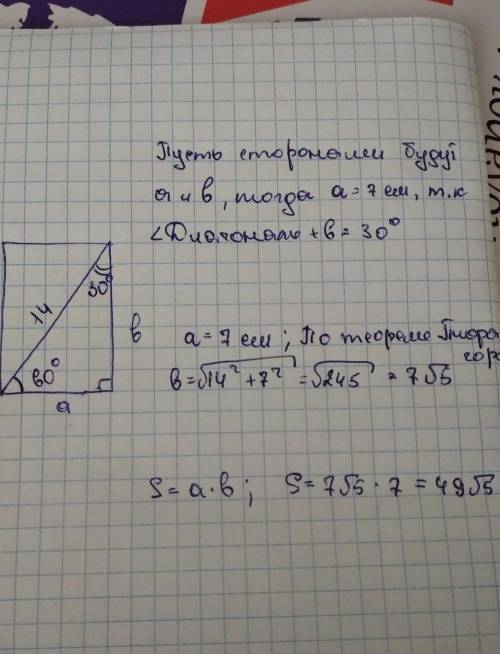 Пусть сторонами будут
a и b, тогда a = 7 см, т.к
∠Диагональ + b = 30°
30°
14
60°
a
b
a = 7 см; По теореме Пифагора
b = √14² + 7² = √245 = 7√5
S = a · b; S = 7√5 · 7 = 49√5